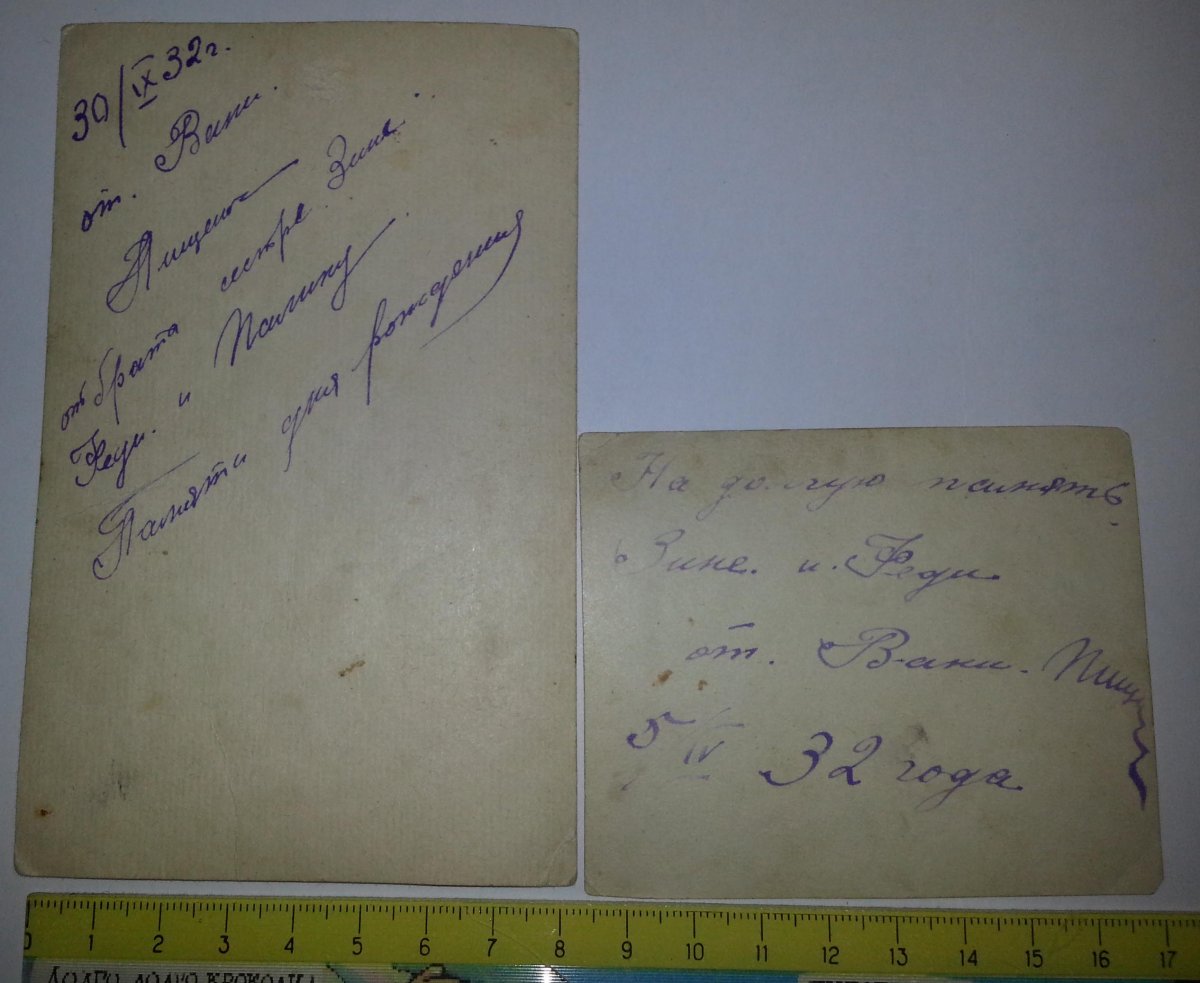 30/IX 32г.
от. Вани.
Пищенко
от брата сестре Зине.
Феди. и Павлику.
Памяти дня рождения
На долгую память
Зине. и. Феди.
от. Вани. Пищ
5/IV 32 года.
0 1 2 3 4 5 6 7 8 9 10 11 12 13 14 15 16 17
ДОЛГО-ДОЛГО КРОКОДИЛ